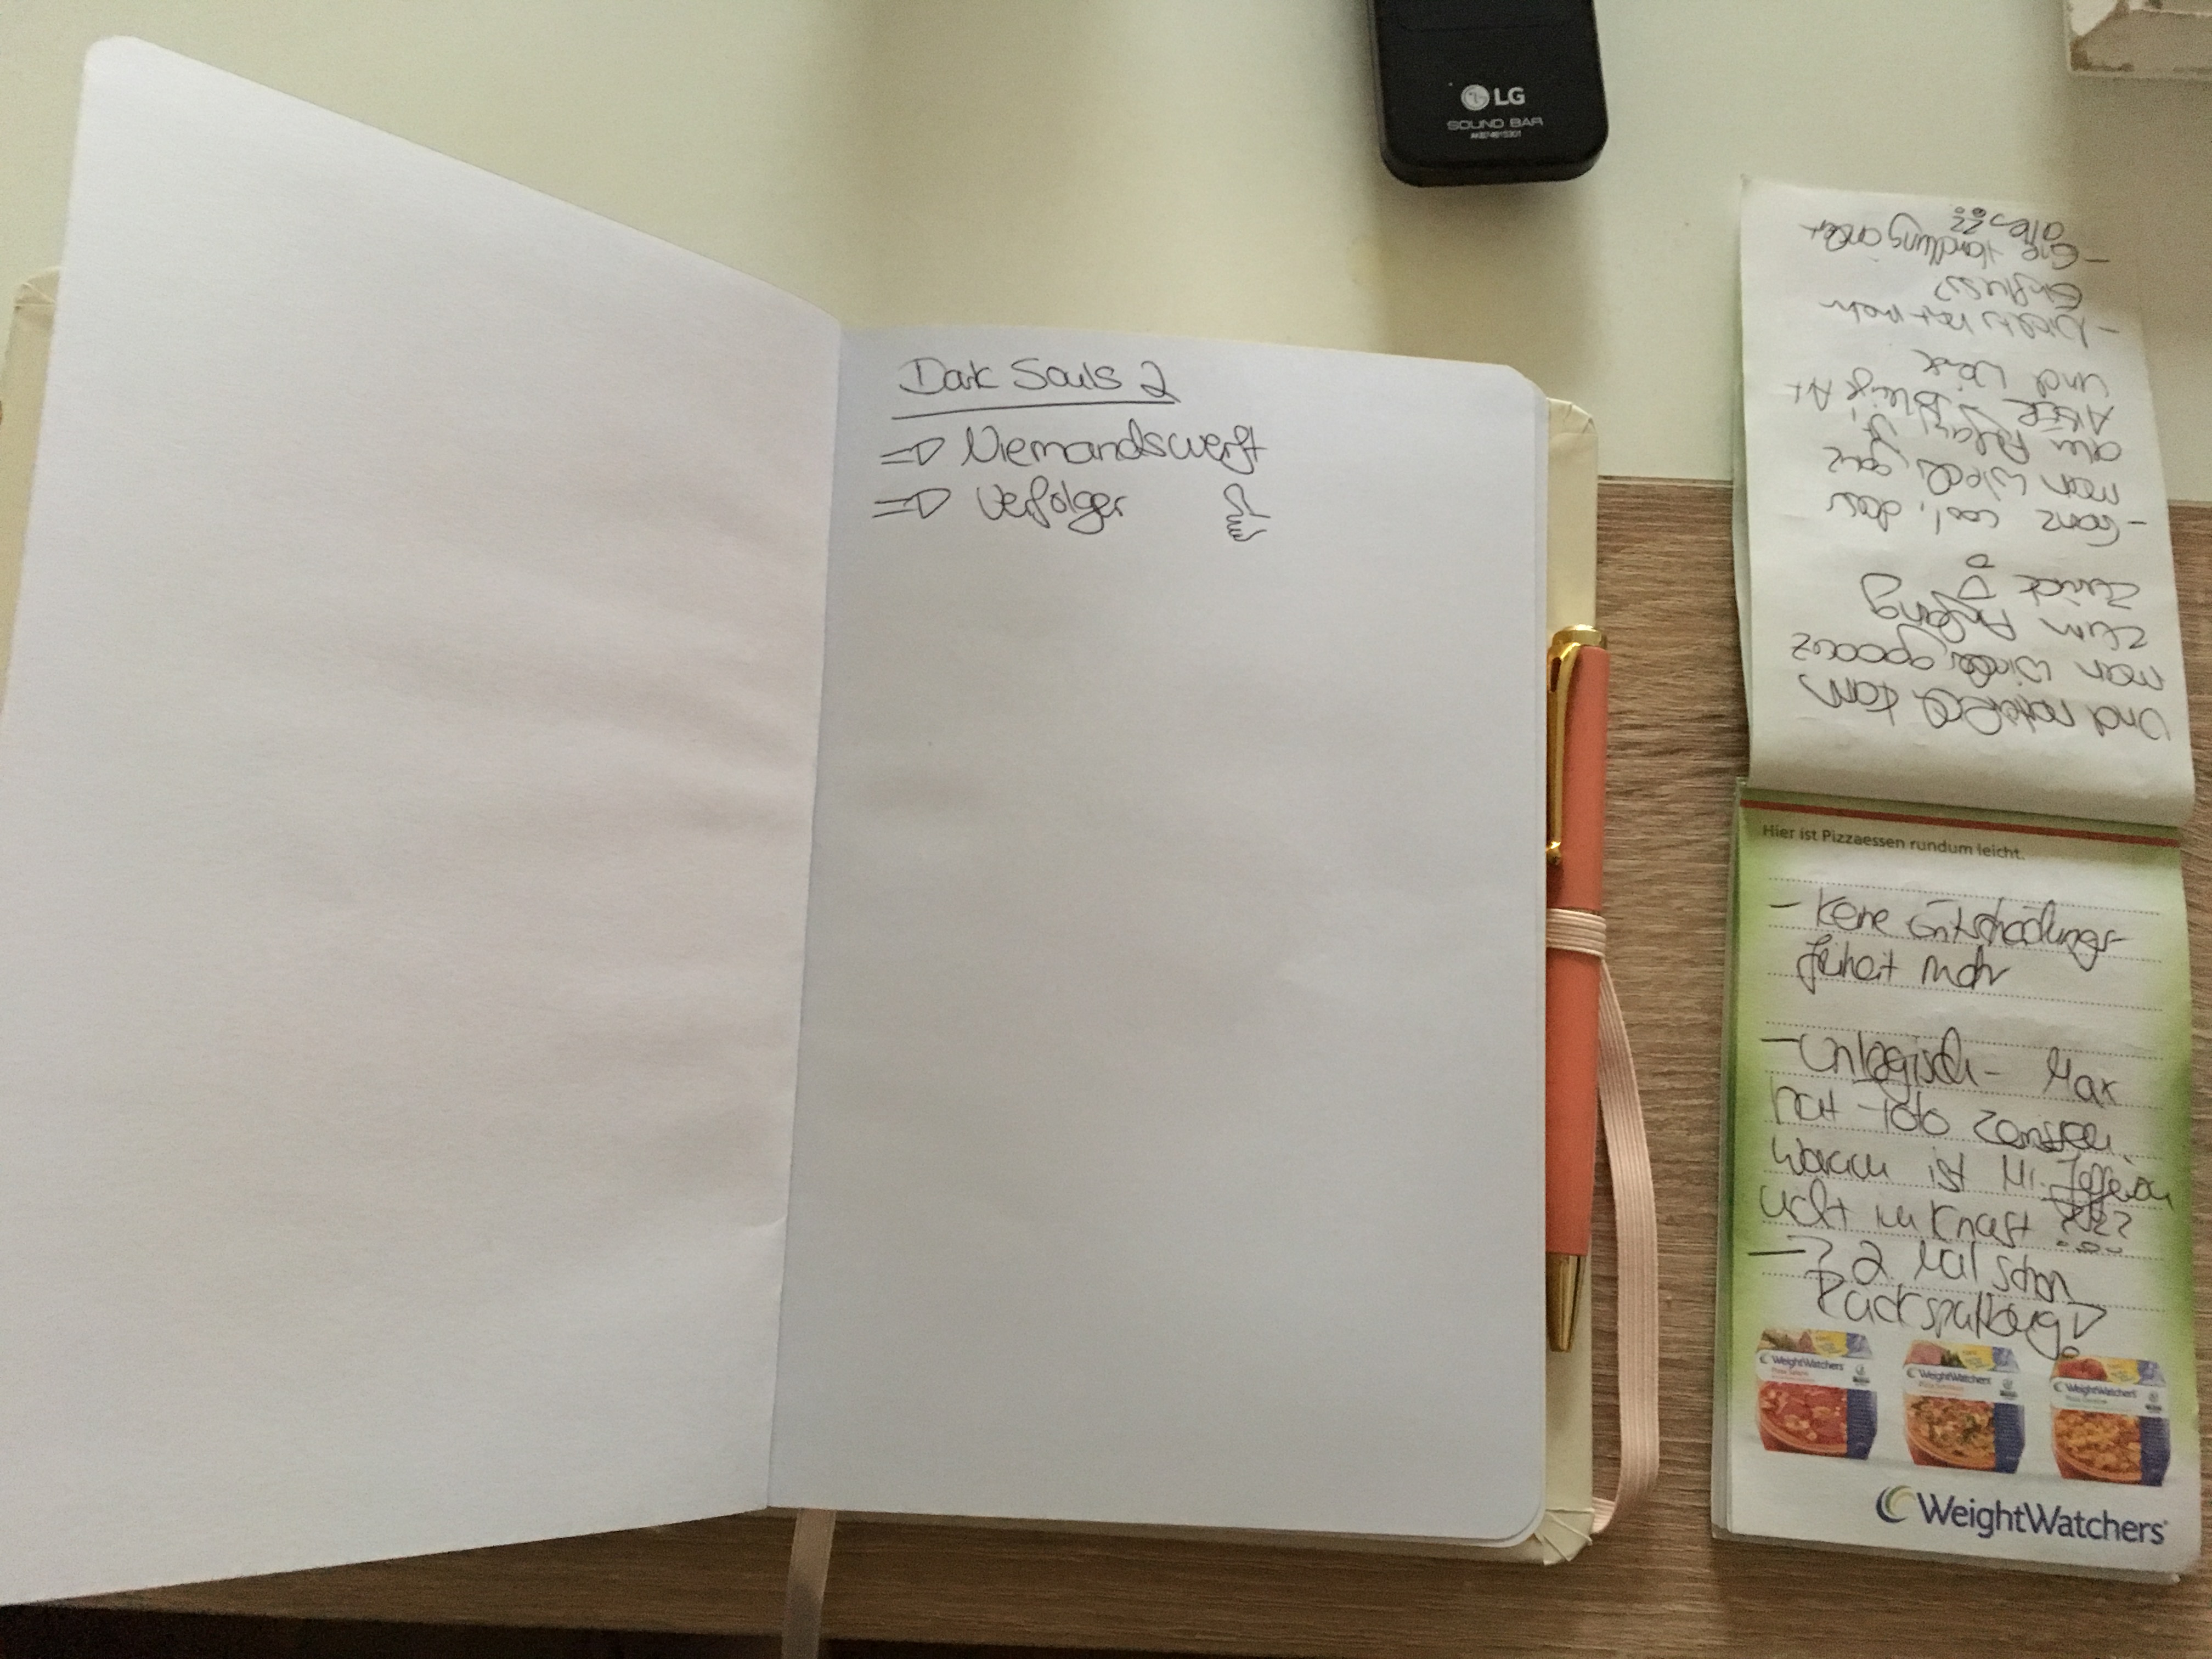 LG
SOUND BAR
Dark Souls 2
=> Niemandswerft
=> Verfolger
Und natürlich kam
man wieder gaaanz
zum Anfang
zurück!
- Ganz cool, dass
man wieder ganz
am Anfang ist,
ABER
und
- Nichts hat mehr
Einfluss
- Eine Handlung ändert
alles ??
Hier ist Pizzaessen rundum leicht.
- Keine Entscheidungs-
freiheit mehr
- Unlogisch - Max
hat Foto zerrissen.
Warum ist Mr. Jefferson
nicht im Knast ????
-> 2 Mal schon
Rückspulzeug!
WeightWatchers
WeightWatchers
WeightWatchers
WeightWatchers